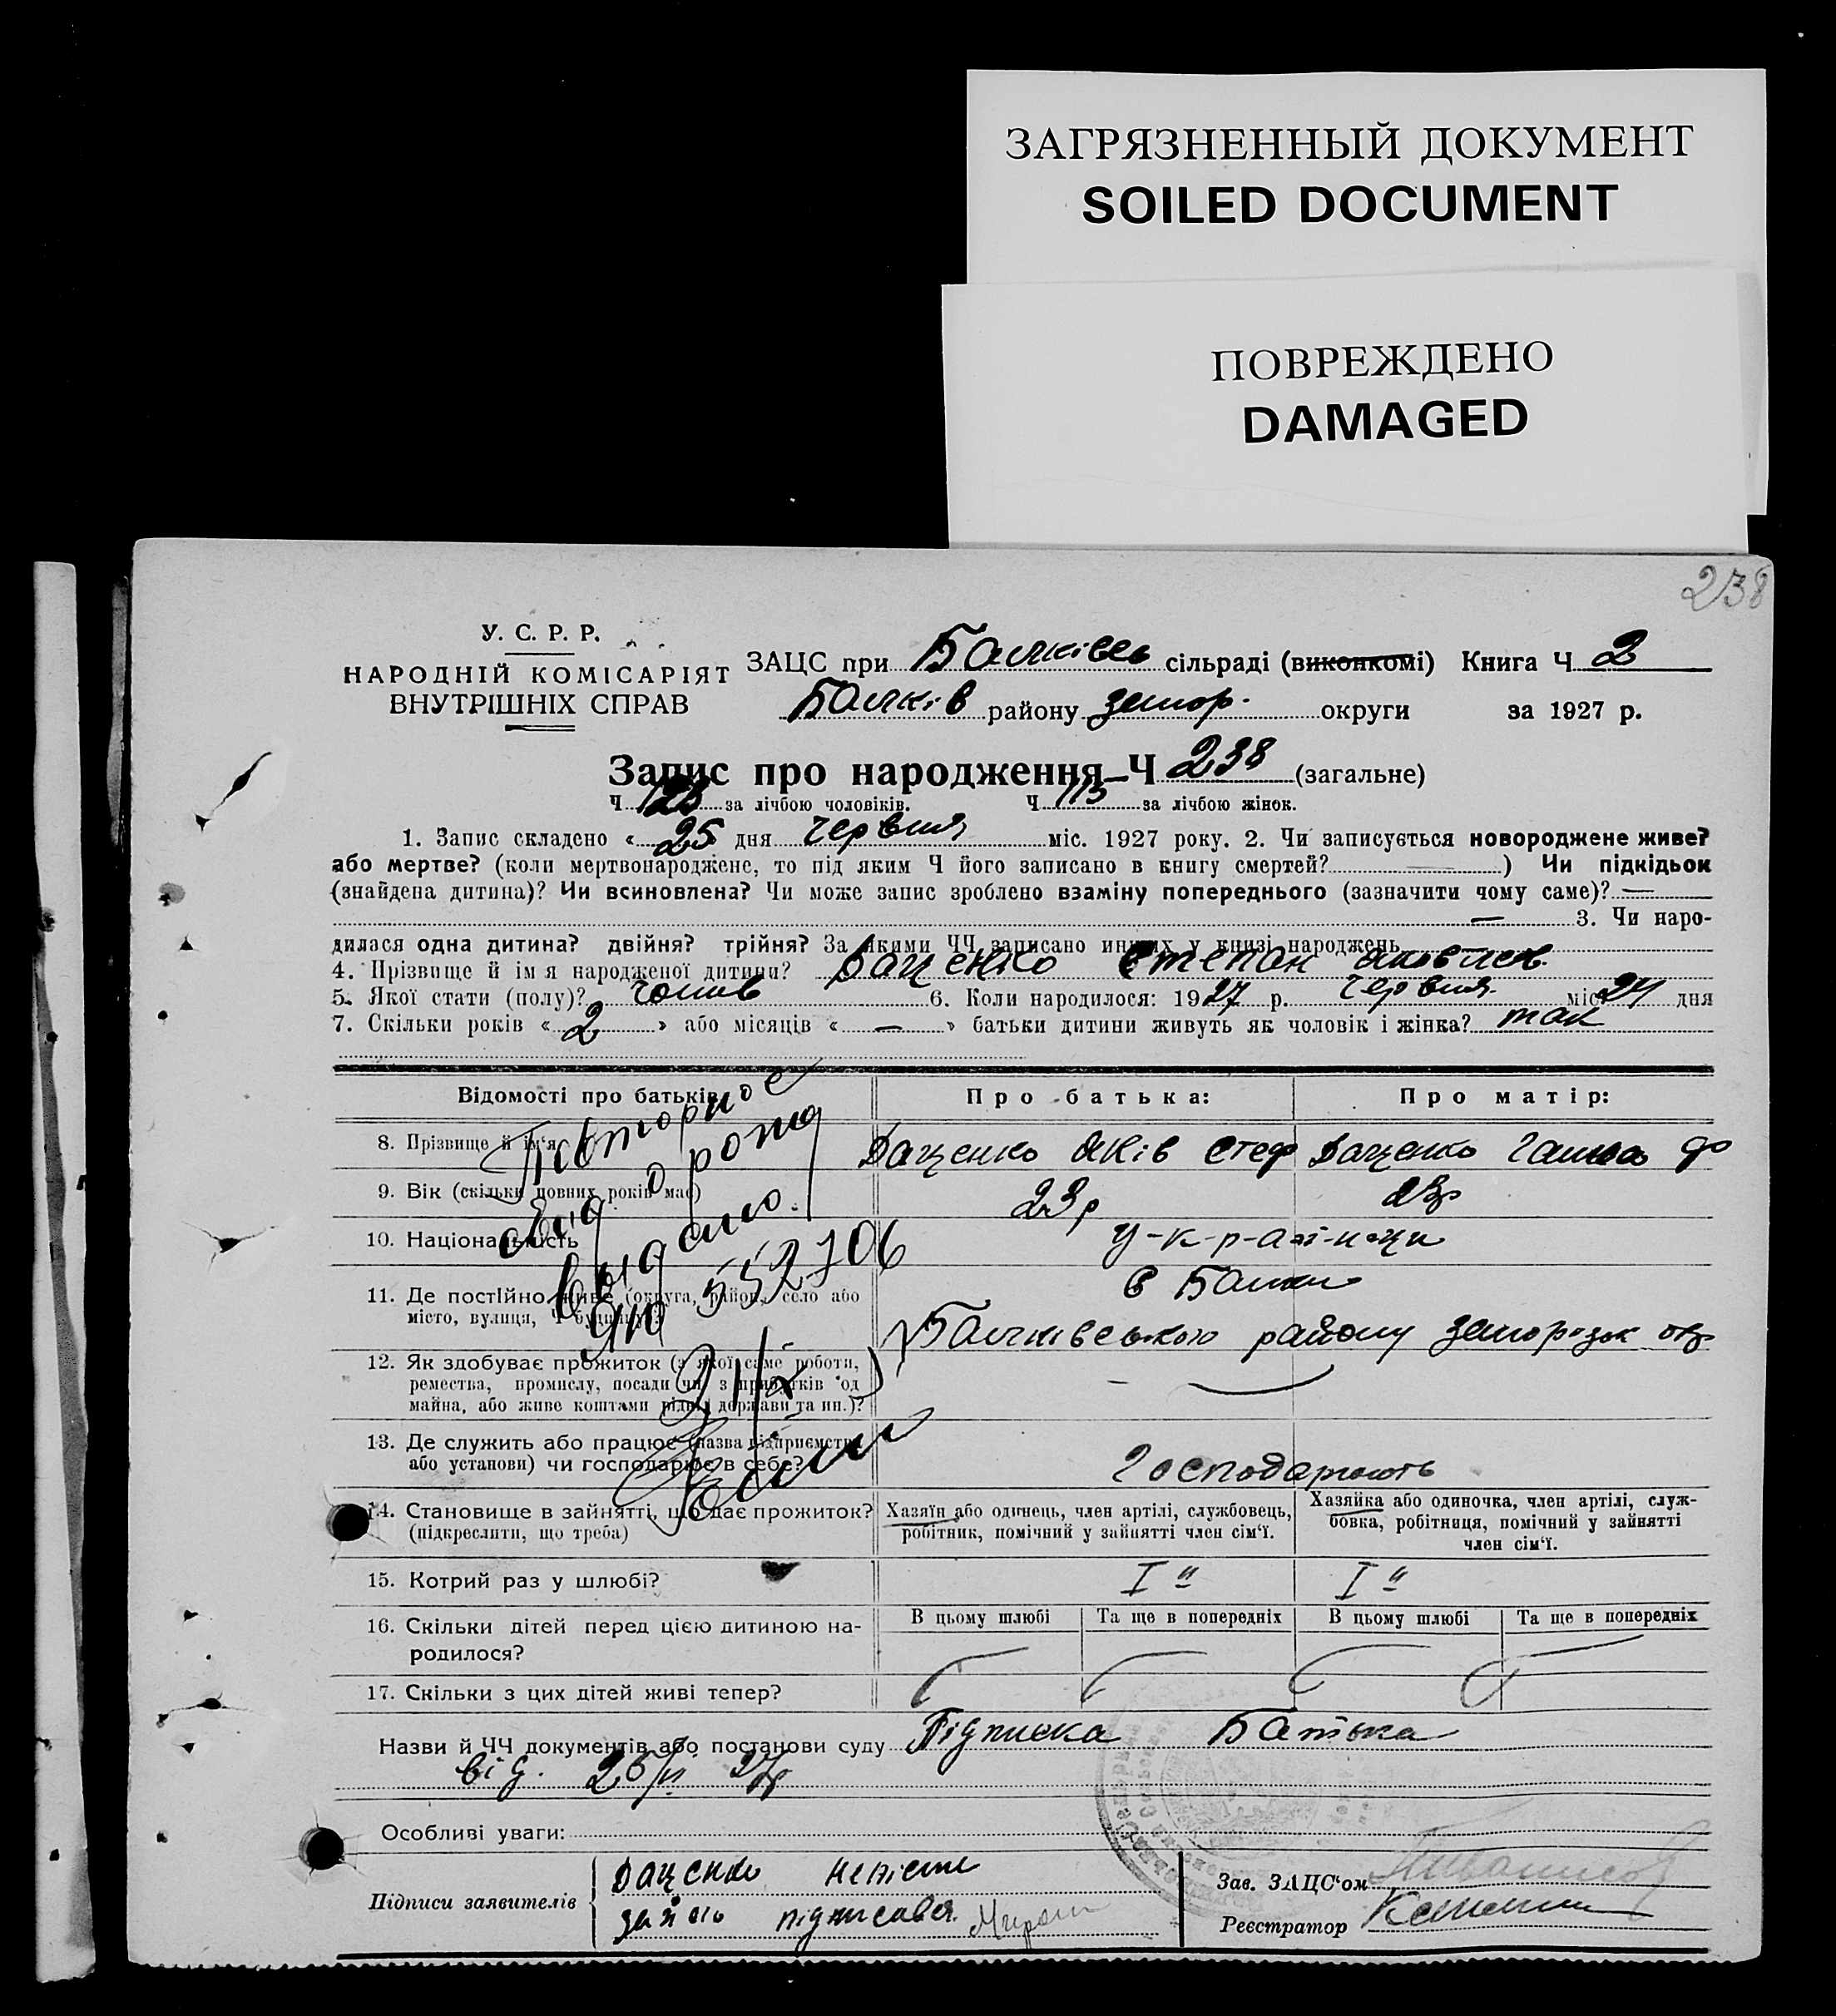 ЗАГРЯЗНЕННЫЙ ДОКУМЕНТ
SOILED DOCUMENT
ПОВРЕЖДЕНО
DAMAGED
238
У. С. Р. Р.
НАРОДНІЙ КОМІСАРІЯТ
ВНУТРІШНІХ СПРАВ
ЗАЦС при Балківсь сільраді (виконкомі) Книга Ч 2
Балків району запор. округи за 1927 р.
Запис про народження—Ч 238 (загальне)
Ч 123 за лічбою чоловіків. Ч 115 за лічбою жінок.
1. Запис складено « 25 дня червня міс. 1927 року. 2. Чи записується новороджене живе?
або мертве? (коли мертвонароджене, то під яким Ч його записано в книгу смертей? —) Чи підкідьок
(знайдена дитина)? Чи всиновлена? Чи може запис зроблено взаміну попереднього (зазначити чому саме)? —
— 3. Чи наро-
дилася одна дитина? двійня? трійня? За якими ЧЧ записано инших у книзі народжень
4. Прізвище й ім'я народженої дитини? Даценко Степан Яковлев
5. Якої стати (полу)? чолов 6. Коли народилося: 1927 р. червня міс 24 дня
7. Скільки років « 2 » або місяців « — » батьки дитини живуть як чоловік і жінка? так
Відомості про батьків Про батька: Про матір:
8. Прізвище й ім'я Даценко Яків Стеф Даценко Ганна
9. Вік (скільки повних років має) 23р 23р
10. Національність у-к-р-аї-н-ци
11. Де постійно живе (округа, район, село або
місто, вулиця, Ч будинку)?
в Балки
Балківського району запорозьк окр
12. Як здобуває прожиток (з якої саме роботи,
ремества, промислу, посади чи з прибутків од
майна, або живе коштами рідні, держави та ин.)?
—
13. Де служить або працює (назва підприємства
або установи) чи господарює в себе?
Господарюють
14. Становище в зайнятті, що дає прожиток?
(підкреслити, що треба)
Хазяїн або одинець, член артілі, службовець,
робітник, помічний у зайнятті член сім'ї.
Хазяйка або одиночка, член артілі, служ-
бовка, робітниця, помічний у зайнятті
член сім'ї.
15. Котрий раз у шлюбі? I й I й
16. Скільки дітей перед цією дитиною на-
родилося?
В цьому шлюбі Та ще в попередніх В цьому шлюбі Та ще в попередніх
17. Скільки з цих дітей живі тепер?
Повторное
свид о рожд
выдано.
ЯЮ 552706
Назви й ЧЧ документів або постанови суду Підписка Батька
від. 25/VI 27р
Особливі уваги:
Підписи заявителів
Даценко неписм
за його підписався
Зав. ЗАЦС'ом
Реєстратор